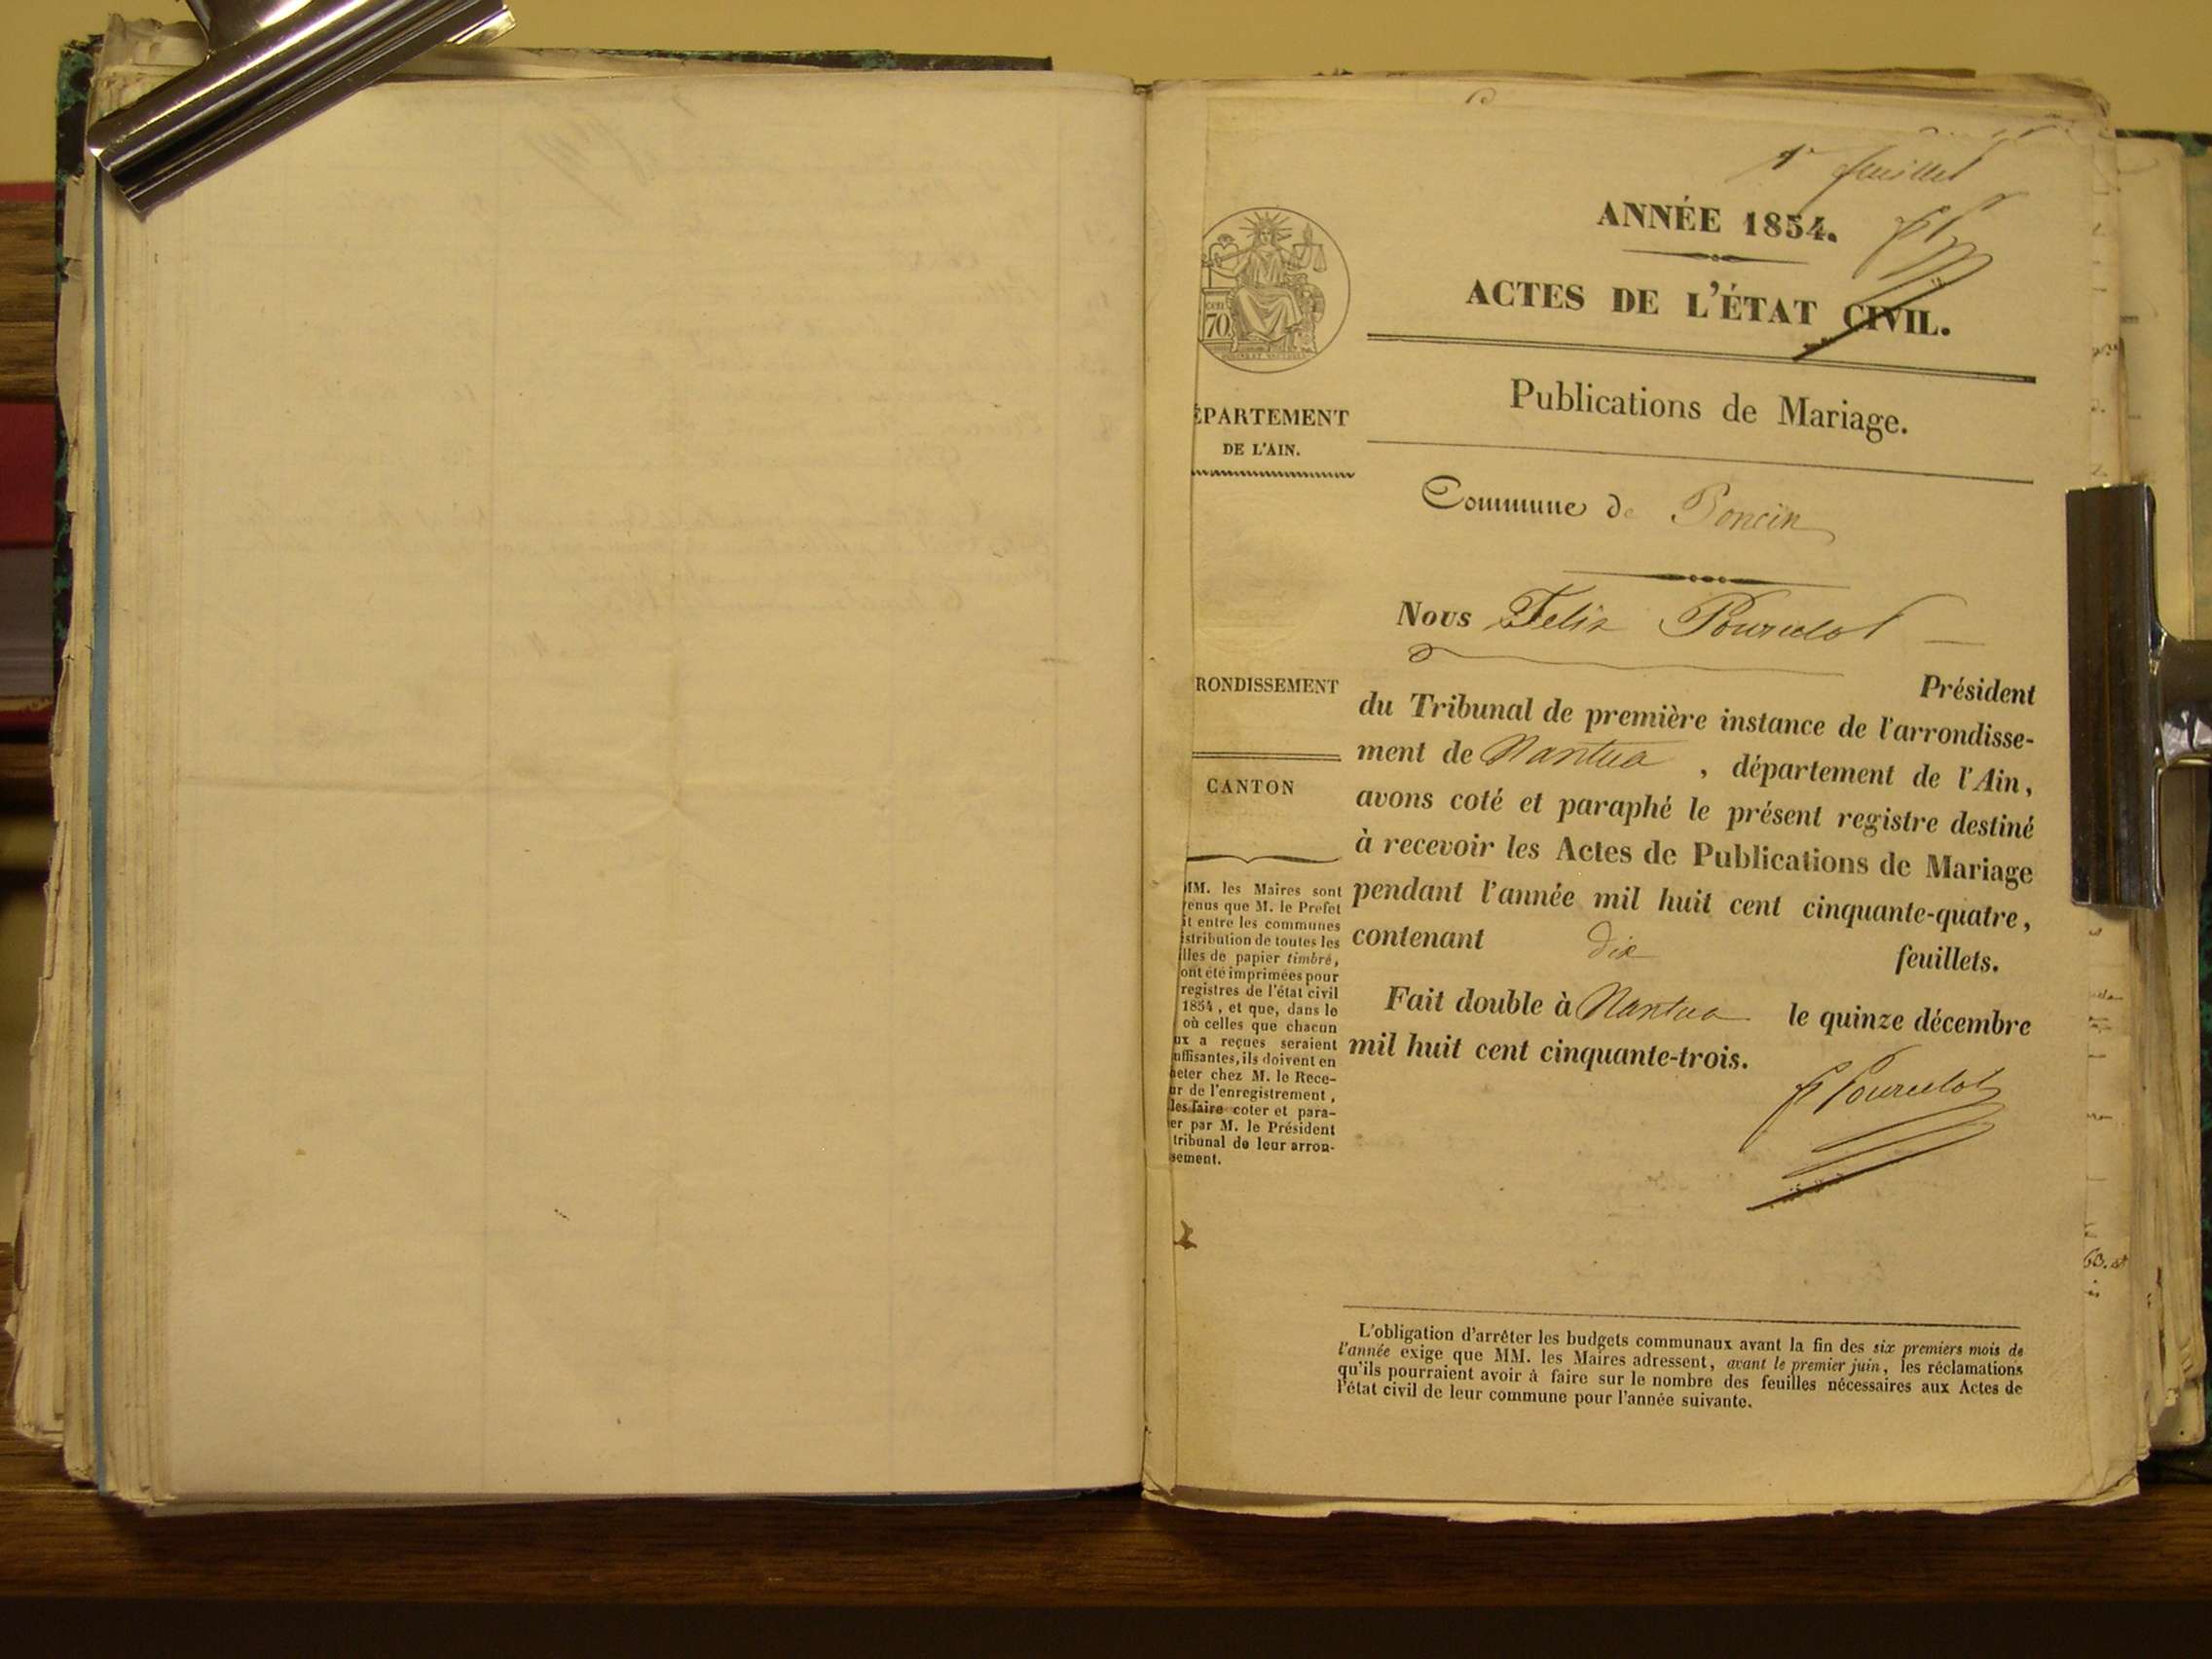 1er feuillet
ANNÉE 1854.
ACTES DE L'ÉTAT CIVIL.
Publications de Mariage.
Commune de Poncin
Nous Felix Pourcelot
Président
du Tribunal de première instance de l'arrondisse-
ment de Nantua , département de l'Ain,
avons coté et paraphé le présent registre destiné
à recevoir les Actes de Publications de Mariage
pendant l'année mil huit cent cinquante-quatre,
contenant dix feuillets.
Fait double à Nantua le quinze décembre
mil huit cent cinquante-trois.
F Pourcelot
70
ÉPARTEMENT
DE L'AIN.
RONDISSEMENT
CANTON
MM. les Maires sont
venus que M. le Prefet
it entre les communes
istribution de toutes les
illes de papier timbré,
ont été imprimées pour
registres de l'état civil
1854, et que, dans le
où celles que chacun
ux a reçues seraient
uffisantes, ils doivent en
heter chez M. le Rece-
ur de l'enregistrement,
les faire coter et para-
er par M. le Président
tribunal de leur arron-
sement.
L'obligation d'arrêter les budgets communaux avant la fin des six premiers mois de
l'année exige que MM. les Maires adressent, avant le premier juin, les réclamations
qu'ils pourraient avoir à faire sur le nombre des feuilles nécessaires aux Actes de
l'état civil de leur commune pour l'année suivante.